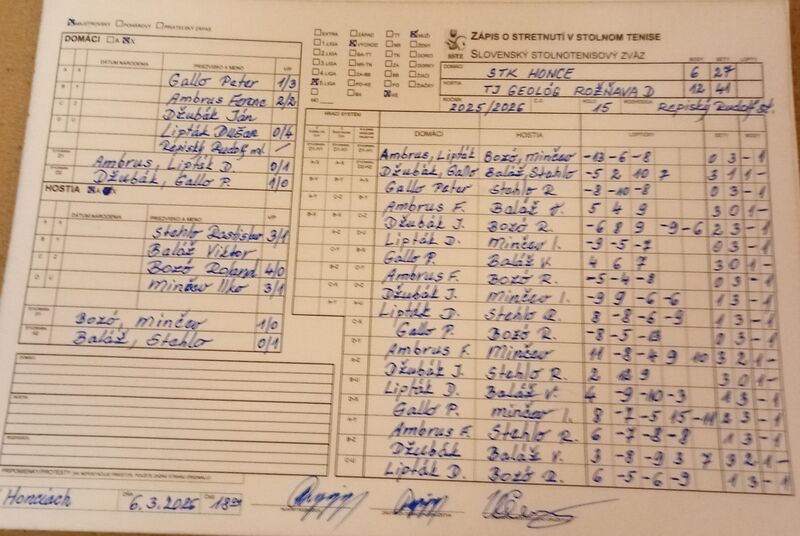 MAJSTROVSKÝ POHÁROVÝ PRIATEĽSKÝ ZÁPAS
ZÁPIS O STRETNUTÍ V STOLNOM TENISE
SLOVENSKÝ STOLNOTENISOVÝ ZVÄZ
EXTRA ZÁPAD TT MUŽI
1. LIGA VÝCHOD NR ŽENY
BODY SETY LOPTY
DOMÁCI STK HONCE 6 27
HOSTIA TJ GEOLÓG ROŽŇAVA D 12 41
ROČNÍK 2025/2026 KOLO 15 ROZHODCA Repiský Rudolf st.
DOMÁCI A X
DÁTUM NARODENIA PRIEZVISKO A MENO V/P
Gallo Peter 1/3
Ambrus Ferenc 2/2
Džubák Ján
Lipták Dušan 0/4
Repiský Rudolf ml. /
Ambrus, Lipták D. 0/1
Džubák, Gallo P. 1/0
HOSTIA
DÁTUM NARODENIA PRIEZVISKO A MENO V/P
Stehlo Rastislav 3/1
Baláž Viktor
Bozó Roland 4/0
Minčev Ilko 3/1
Bozó, Minčev 1/0
Baláž, Stehlo 0/1
HRACÍ SYSTÉM DOMÁCI HOSTIA LOPTIČKY SETY BODY
Ambrus, Lipták Bozó, Minčev -13 -6 -8 0 3 - 1
Džubák, Gallo Baláž, Stehlo -5 2 10 7 3 1 1 -
Gallo Peter Stehlo R. -8 -10 -8 0 3 - 1
Ambrus F. Baláž V. 5 4 9 3 0 1 -
Džubák J. Bozó R. -6 8 9 -9 -6 2 3 - 1
Lipták D. Minčev I. -9 -5 -7 0 3 - 1
Gallo P. Baláž V. 4 6 7 3 0 1 -
Ambrus F. Bozó R. -5 -4 -8 0 3 - 1
Džubák J. Minčev I. -9 9 -6 -6 1 3 - 1
Lipták D. Stehlo R. 8 -8 -6 -9 1 3 - 1
Gallo P. Bozó R. -8 -5 -13 0 3 - 1
Ambrus F. Minčev 11 -8 -4 9 10 3 2 1 -
Džubák J. Stehlo R. 2 12 9 3 0 1 -
Lipták D. Baláž V. 4 -9 -10 -3 1 3 - 1
Gallo P. Minčev I. 8 -7 -5 15 -11 2 3 - 1
Ambrus F. Stehlo R. 6 -7 -8 -8 1 3 - 1
Džubák Baláž V. 3 -8 -9 3 7 3 2 1 -
Lipták D. Bozó R. 6 -5 -6 -9 1 3 - 1
DOMÁCI
HOSTIA
ROZHODCA
PRIPOMIENKY/PROTESTY
Honciach DŇA 6.3.2026 18